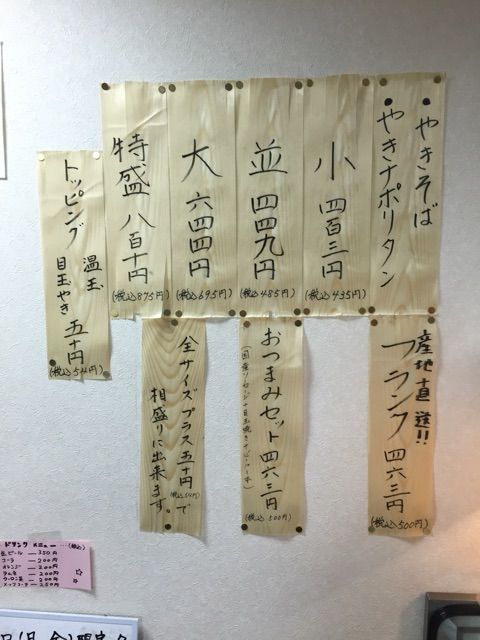 ・やきそば
・やきナポリタン
小 四百三円
(税込435円)
並 四四九円
(税込485円)
大 六四四円
(税込695円)
特盛 八百十円
(税込875円)
トッピング
温玉
目玉やき 五十円
(税込54円)
産地直送!!
フランク 四六三円
(税込500円)
おつまみセット 四六三円
(税込500円)
全サイズプラス五十円(税込54円)で
相盛りに出来ます。
ドリンクメニュー…(税込)
生ビール — 350円
コーラ — 200円
オレンジ — 200円
ラムネ — 200円
ウーロン茶 — 200円